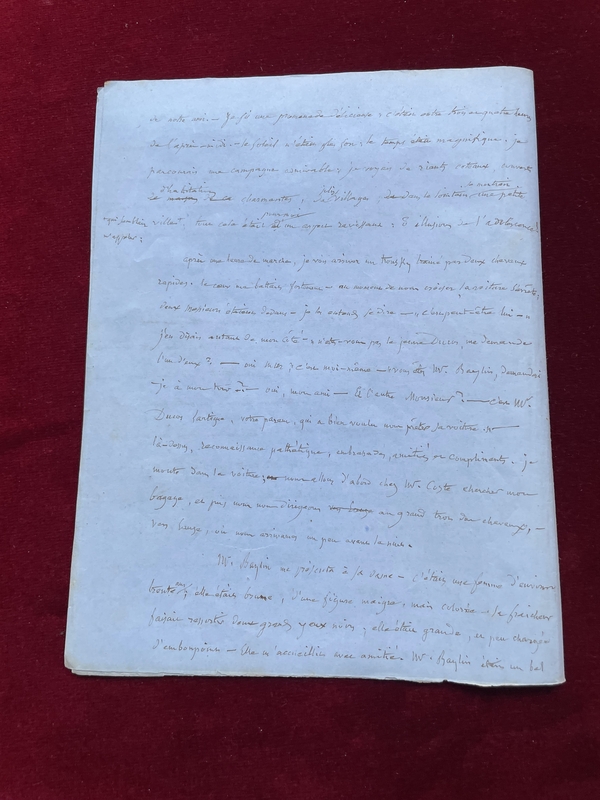 de votre ami. — Je fis une promenade délicieuse ; c'était entre trois ou quatre heures
de l'après-midi. — le soleil n'était plus fort ; le temps était magnifique ; je
parcourais une campagne admirable ; je voyais de riants coteaux couverts
d'habitations charmantes, plus des villages dans le lointain, une petite
qui semblait tout cela était un aspect ravissant : ô illusions de l'adolescence
après une heure de marche, je vis arriver un trousky trainé par deux chevaux
rapides. le cœur me battait fortement — au moment de nous croiser, la voiture s'arrête,
deux messieurs étaient dedans — je les entends se dire — c'est peut-être lui — 
j'en disais autant de mon côté — n'êtes-vous pas le jeune Ducos me demande
l'un d'eux ? — oui Mr ; c'est moi-même — vous êtes Mr. Baylin, demandai
-je à mon tour ? — oui, mon ami — Et l'autre Monsieur ? — c'est Mr.
Ducos votre parent, qui a bien voulu me prêter sa voiture —
là-dessus, reconnaissance pathétique, embrassades, amitiés et compliments. je
monte dans la voiture nous allons d'abord chez Mr. Coste chercher mon
bagage, et puis nous nous dirigeons au grand trot des chevaux, —
vers où nous arrivâmes un peu avant la nuit.
Mr. Baylin me présenta à sa dame — c'était une femme d'environ
trente ans ; elle était brune, d'une figure maigre, mais colorée — sa fraîcheur
faisait ressortir deux grands yeux noirs ; elle était grande, et peu chargée
d'embonpoint — Elle m'accueillit avec amitié. Mr. Baylin était un bel